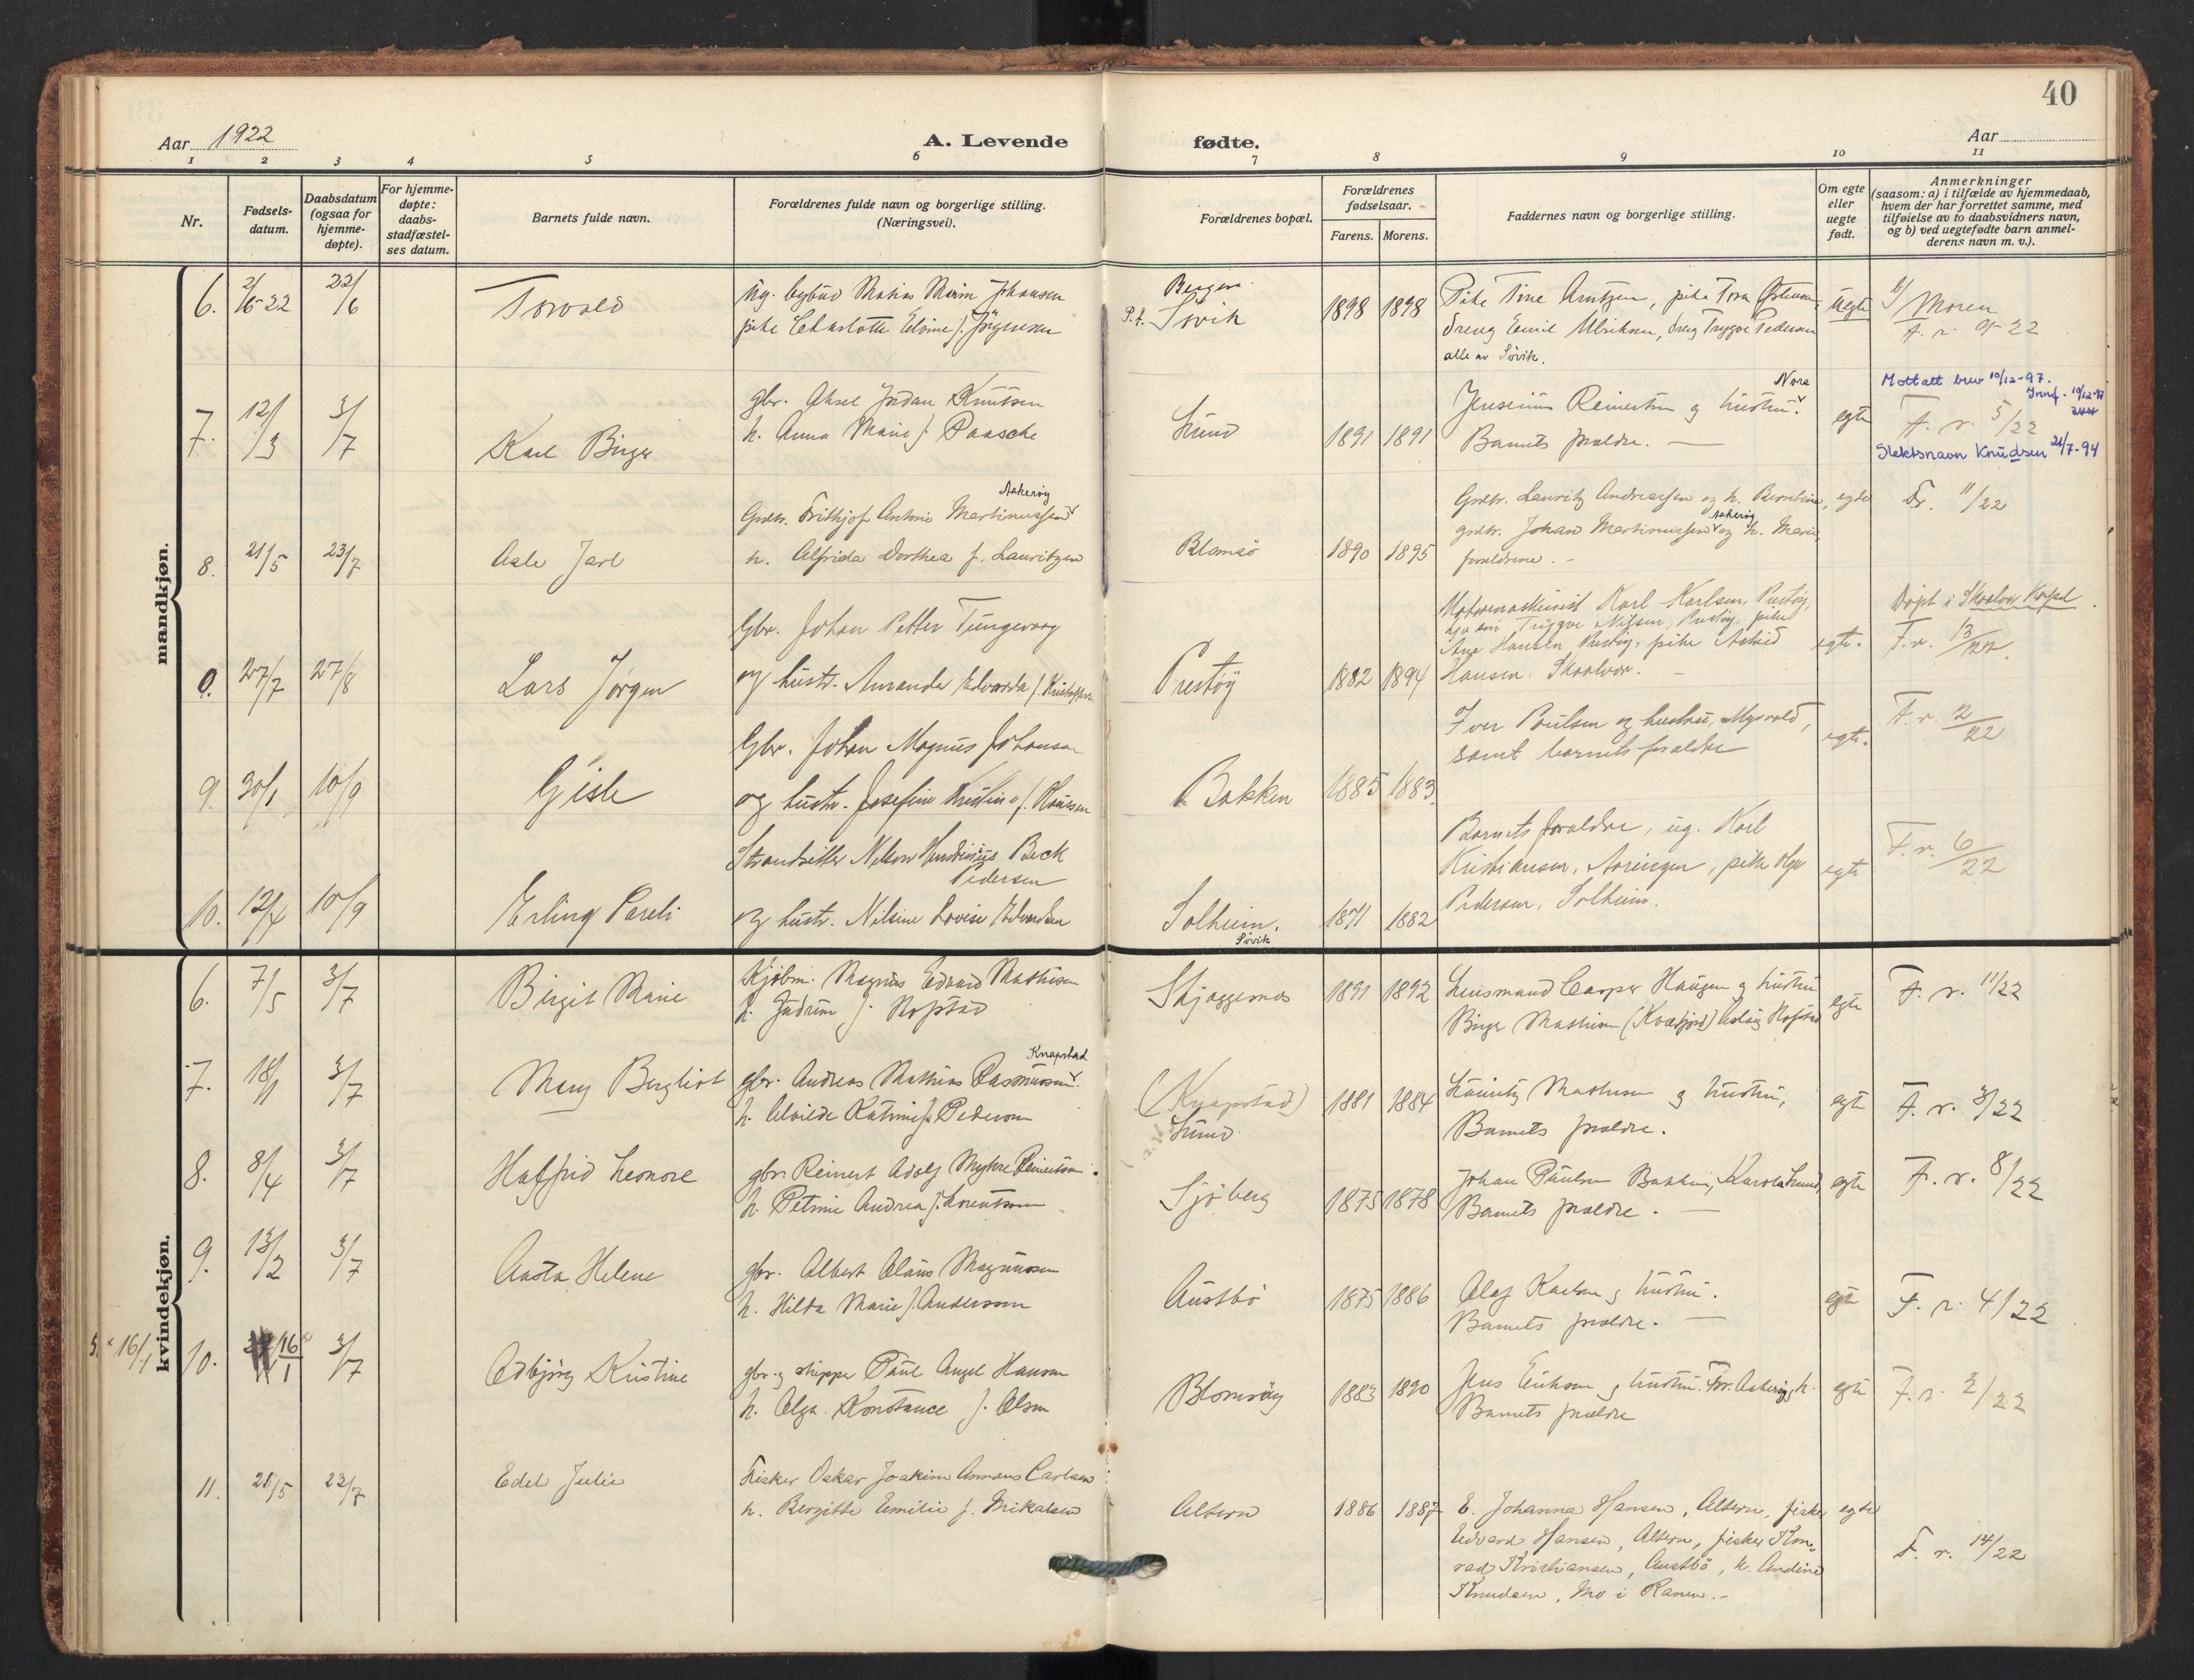 40
Aar 1922
A. Levende fødte.
Aar
1 2 3 4 5 6 7 8 9 10 11
Nr.
Fødsels-
datum.
Daabsdatum
(ogsaa for
hjemme-
døpte).
For hjemme-
døpte:
daabs-
stadfæstel-
ses datum.
Barnets fulde navn.
Forældrenes fulde navn og borgerlige stilling.
(Næringsvei).
Forældrenes bopæl.
Forældrenes
fødselsaar.
Farens. Morens.
Faddernes navn og borgerlige stilling.
Om egte
eller
uegte
født.
Anmerkninger
(saasom: a) i tilfælde av hjemmedaab,
hvem der har forrettet samme, med
tilføielse av to daabsvidners navn,
og b) ved uegtefødte barn anmel-
derens navn m. v.).
mandkjøn.
6. 2/6-22 22/6
Torvald
ug. Mathias Johansen
pike Charlotte Elvine f. Jørgensen
Bergen
P.t. Søvik
1898 1898
Pike Tine Arntzen, pike Tora
dreng Emil Ulriksen, dreng Trygve Pedersen
alle av Søvik.
uegte
b/ Moren
F. r. 9-22
7. 12/3 3/7
Karl Birger
gbr. Aksel Jordan Knutsen
h. Anna Marie f. Paasche
Lund
1891 1891
Nora
Jensenius Reinertsen og hustru.
Barnets forældre. —
egte
Mottatt brev 10/12-97.
F. r. 5/22
Slektsnavn Knudsen 21/7-94
8. 21/5 23/7
Asle Jarl
Aakerøy
Grdbr. Frithjof Antoni Martinussen
h. Alfrida Dorthea f. Lauritzen
Blomsø
1890 1895
Grdbr. Lauritz Andreassen og h. Berntine,
Aakerøy
grdbr. Johan Martinussen og h. Marie,
forældrene. -
egte
F. r. 11/22
9. 27/7 27/8
Lars Jørgen
Gbr. Johan Petter Tungevaag
og hustr. Amanda Edvarda f. Kristoffersen
Prestøy
1882 1894
Motormaskinist Karl Karlsen, Prestøy,
Trygve Nilsen, Prestøy, pike
Hansen Prestøy, pike Astrid
Hansen, Skaalvær. -
egte.
Døpt i Skaalvær Kapel.
F. r. 13/22.
9. 30/1 10/9
Gisle
Gbr. Johan Magnus Johansen
og hustr. Josefine Kristine f. Hansen
Bakken
1885 1883.
Iver Poulsen og hustru, Mysvold,
samt barnets forældre
egte.
F. r. 2/22
10. 12/4 10/9
Erling Pareli
Strandsitter Nelson Beck
Pedersen
og hustr. Nilsine Lovise Edvardsen
Solheim.
1871 1882
Barnets forældre, ug. Karl
Kristiansen, pike Olga
Pedersen, Solheim.
egte
F. r. 6/22
kvindekjøn.
6. 7/5 3/7
Birgit Marie
Kjøbm. Magnus Edvard Mathisen
h. Gudrun f. Hofstad
Søvik
Skjeggesnes
1891 1892
Lensmand Casper Haugen og hustru
Birger Mathisen (Kvæfjord) Hofstad
egte
F. r. 11/22
7. 18/1 3/7
Mary Bergliot
Knapstad
gbr. Andreas Mathias Rasmussen.
h. Alvilde Katrine f. Pedersen
(Knapstad)
Lund
1881 1884
Lauritz Mathisen og hustru,
Barnets forældre.
egte
F. r. 3/22
8. 8/4 3/7
Halfrid Leonore
gbr. Reinert Adolf Myhre Reinertsen.
h. Petrine Andrea f. Lorentsen
Sjøberg
1875 1878
Johan Paulsen Bakken, Karola Lund,
Barnets forældre. —
egte
F. r. 8/22
9. 13/2 3/7
Aasta Helene
gbr. Albert Olaus Magnussen
h. Hilda Marie f. Anderssen
Austbø
1875 1886
Olaf Karlsen og hustru.
Barnets forældre. —
egte
F. r. 4/22
16/1
10. 16/1 3/7
Edbjørg Kristine
gbr. og skipper Paul Angel Hansen
h. Olga Konstance f. Olsen
Blomsøy
1883 1890
Jens Eriksen og hustru.
Barnets forældre
egte
F. r. 2/22
11. 21/5 23/7
Edel Julie
Fisker Oskar Joakim Carlsen
h. Bergitte Emilie f. Mikalsen
Altern
1886 1887
E. Johanna Hansen, Altern, fisker
Edvard Hansen, Altern, fisker Kon-
rad Kristiansen, Austbø, h. Andine
Knudsen, Mo i Ranen.-
egte
F. r. 14/22